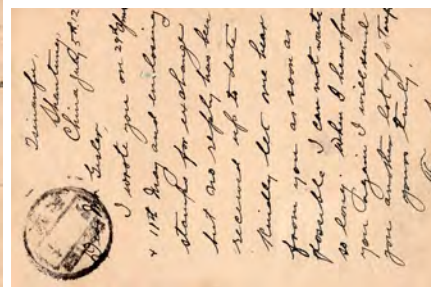 Tsinanfu,
Shantung,
China July 5th, 12
Dear Mr
I wrote you on 27th
& 11th May and enclosing
stamps for exchange
but no reply has been
received up to date
Kindly let me hear
from you as soon as
possible I can not wait
so long. When I hear from
you again I will send
you another lot of stamps
yours truly,